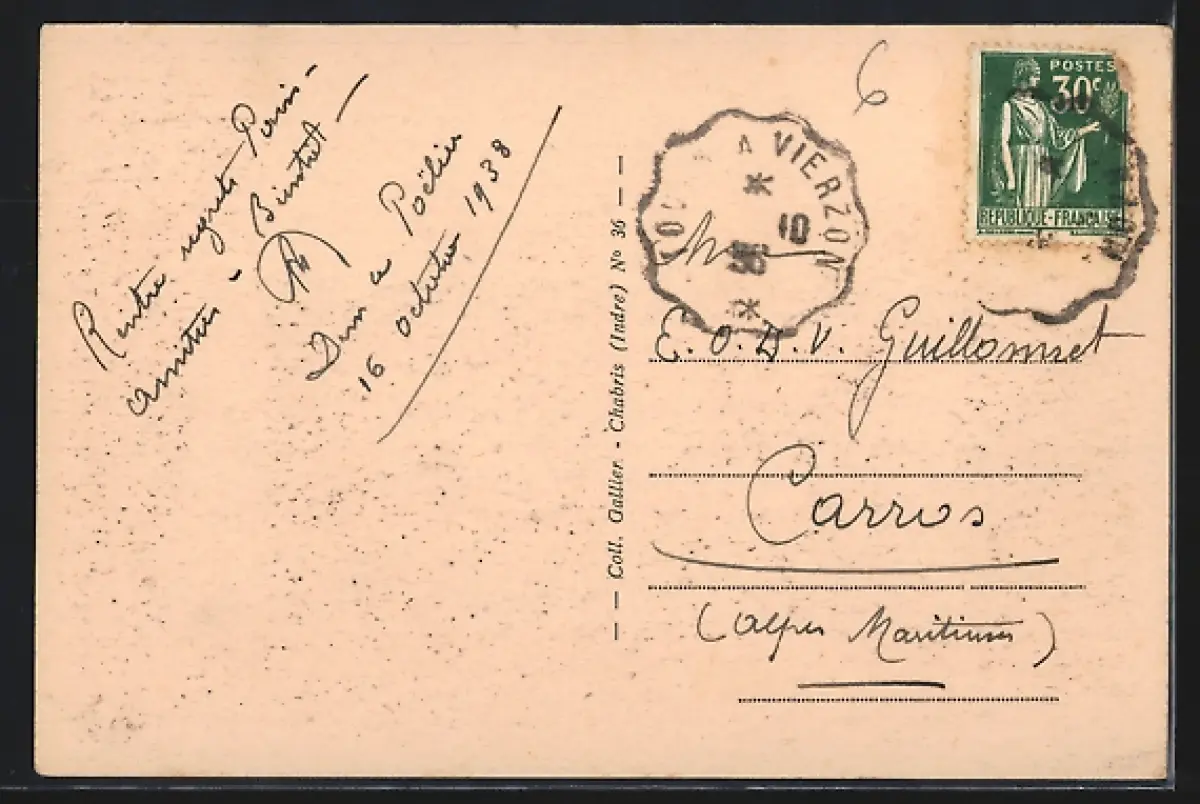 Rentre regrets Paris -
amitiés - Bientôt -
Dun le Poëlier
16 octobre 1938
Coll. Gallier. - Chabris (Indre) Nº 36
6
POSTES
30c
REPUBLIQUE-FRANÇAISE
A VIERZON
10
38
E. O. D. V. Guillommet
Carros
(Alpes Maritimes)